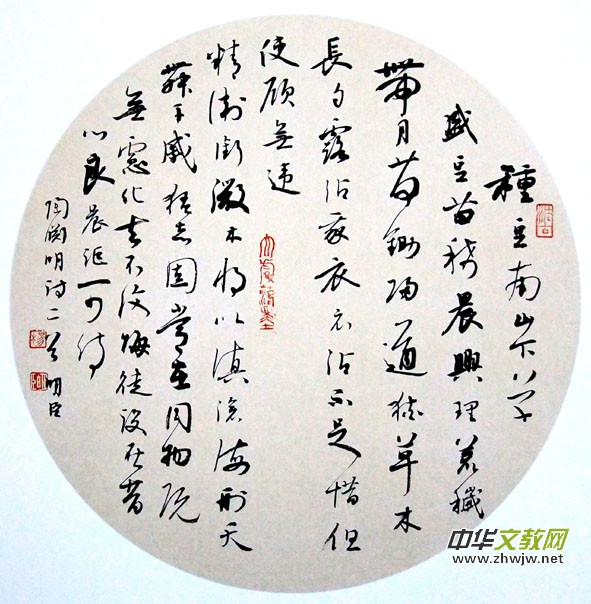 種豆南山下草
盛豆苗稀晨興理荒穢
帶月荷鋤歸道狹草木
長夕露沾我衣衣沾不足惜但
使願無違
精衛銜微木將以填滄海刑天
舞干戚猛志固常在同物既
無慮化去不復悔徒設在昔
心良晨詎可待
陶淵明詩二首 明臣
中华文教网
www.zhwjw.net